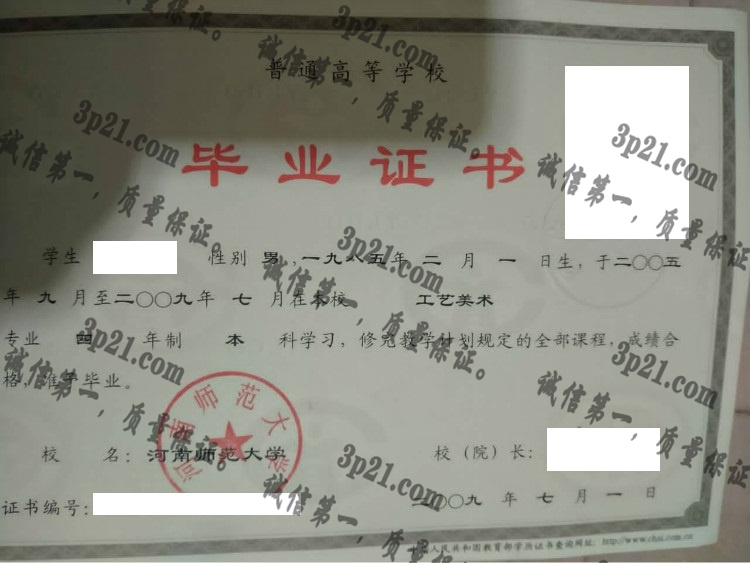 普通高等学校
毕业证书
学生 性别 男 ,一九八五年 二 月 一 日生,于二〇〇五
年 九 月至二〇〇九年 七 月在本校 工艺美术
专业 四 年制 本 科学习,修完教学计划规定的全部课程,成绩合
格,准予毕业。
河南师范大学
校 名: 河南师范大学 校(院)长:
证书编号: 二〇〇九 年 七 月 一 日
人民共和国教育部学历证书查询网址: http://www.chsi.com.cn
3p21.com
诚信第一,质量保证。
3p21.com
诚信第一,质量保证。
3p21.com
诚信第一,质量保证。
3p21.com
诚信第一,质量保证。
3p21.com
诚信第一,质量保证。
3p21.com
诚信第一,质量保证。
3p21.com
诚信第一,质量保证。
3p21.com
诚信第一,质量保证。